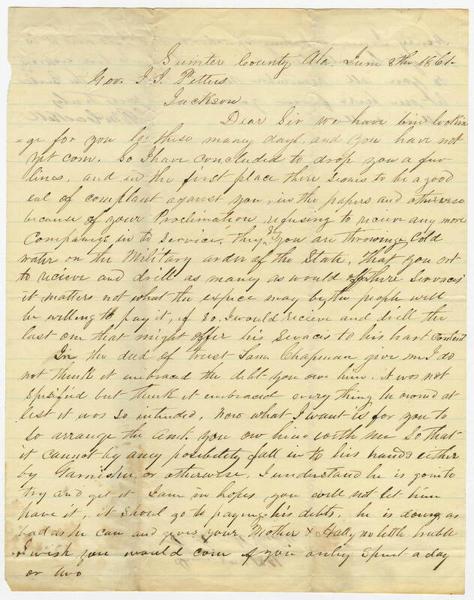 Sumter County Ala June 8th 1861
Gov. J. J. Pettus
Jackson
Dear Sir we have bin lookin
ge for you by these many days, and you have not
yet com. So I have concluded to drop you a fiew
lines, and in the first place there seams to be a good
eal of complant against you, in the papers and otherwise
because of your Proclination, refusing to receiv any more
Companys in to Service, they say you are throwing Cold
water on the Military arder of the State, that you ort
to recieve and drill as many as would offer there Services
it matters not what the expece may be the people will
be willing to pay it, if So. I would recieve and drill the
last one that might offer his Servacis to his hart Content
In the deed of trust Sam. Chapman give me I do
not think it embraced the debt you owe him. it was not
Spesified but think it embrased everything he owned at
list it was so intended, now what I want is for you to
so arrange the amt. you ow him with me So that
it cannot by any posibelety fall in to his hands either
by Garnishee or otherwise, I understand he is goin to
try and get it I am in hopes you will not let him
have it, it Shoul go to paying his debts. he is doing as
bad as he can and gives your Mother & Hatty no little truble
I wish you would com if you only Spent a day
or two